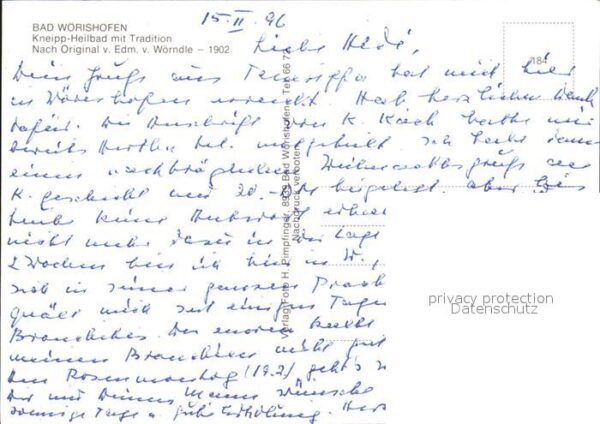 BAD WÖRISHOFEN
Kneipp-Heilbad mit Tradition
Nach Original v. Edm. v. Wörndle – 1902
15.II.96
184
Liebe Hedi,
Dein Gruß aus Teneriffa hat mich hier
in Wörishofen erreicht. Hab herzlichen Dank
dafür. Die Anschrift von K. Koch hatte mir
bereits Hertha tel. mitgeteilt. Ich hatte dann
einen nachträglichen Weihnachtsgruß an
K. geschickt und 20.- beigelegt. aber bis
heute keine Antwort
nicht mehr in der Lage
2 Wochen bin ich hier in W.,
sich in seiner ganzen Pracht
quält mich seit einigen Tagen
Bronchitis. Der enorm
meinen Bronchien nicht gut
Am Rosenmontag (19.2) geht's
Dir und Deinem Mann wünsche
sonnige Tage u. gute Erholung. Herz
Verlag Foto H. Pimpfinger, 8939 Bad Wörishofen, Tel. 66 7
Nachdruck verboten
privacy protection
Datenschutz